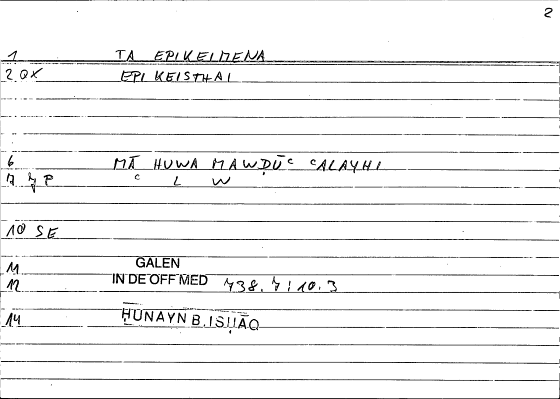 2
1 TA EPIKEIMENA
2 OX EPIKEISTHAI
6 MĀ HUWA MAWḌŪʿ ʿALAYHI
7 P ʿ L W
10 SE
11 GALEN
12 IN DE OFF MED 738.7:10.3
14 ḤUNAYN B. ISḤĀQ